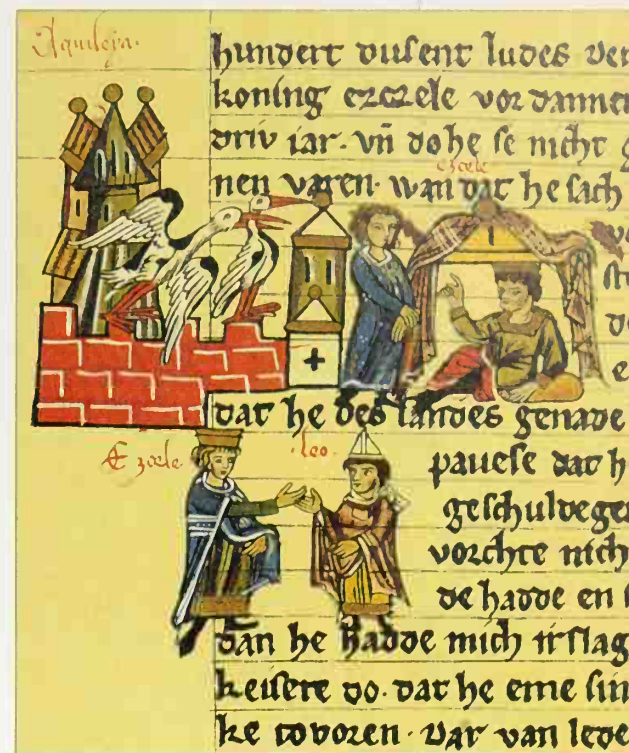 Aquileja.
hundert dusent ludes ver
koning ezczele vor dannen
driv jar. vn̄ do he se nicht g
ezcele
nen varen. wan dat he sach
sto
do
e
dat he des landes genade
Ezcele. leo.
pauese dat h
geschuldeget
vorchte nich
de hadde en s
dan he hadde mich irslag
keisere do. dat he eme sin
ke tovoren. Dar van lede